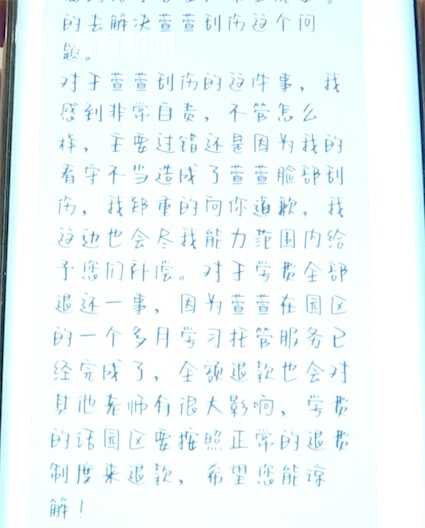 的去解决萱萱划伤这个问
题。
对于萱萱划伤的这件事，我
感到非常自责，不管怎么
样，主要过错还是因为我的
看守不当造成了萱萱脸部划
伤，我郑重的向你道歉。我
这边也会尽我能力范围内给
予您们补偿。对于学费全部
退还一事，因为萱萱在园区
的一个多月学习托管服务已
经完成了，全额退款也会对
其他老师有很大影响，学费
的话园区要按照正常的退费
制度来退款，希望您能谅
解！